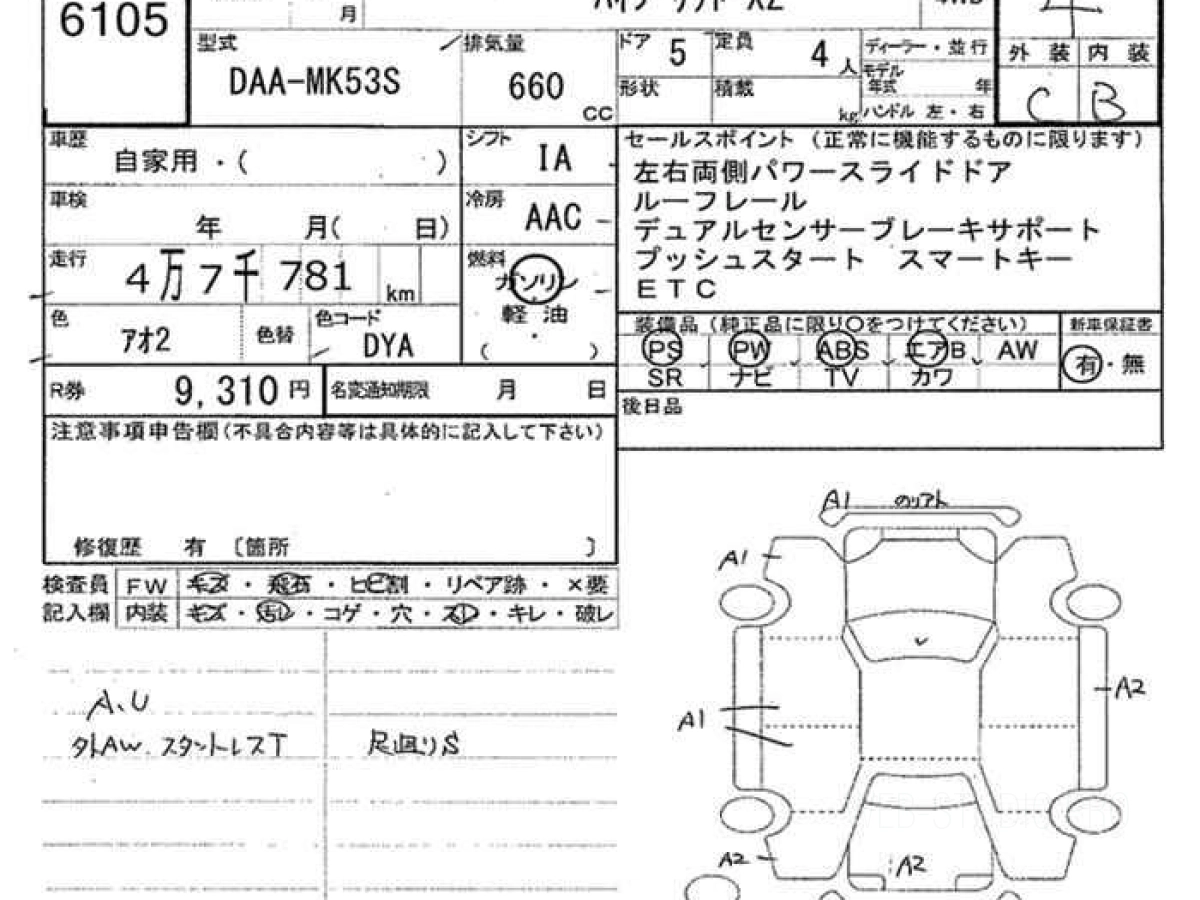 6105
月
ハイブリッド XZ
4WD
型式
排気量
ドア 5
定員 4 人
ディーラー・並行
外 装 内 装
DAA-MK53S
660
CC
形状
積載
kg
モデル年式 年
ハンドル 左・右
C B
車歴
自家用・( )
シフト
IA
セールスポイント (正常に機能するものに限ります)
左右両側パワースライドドア
ルーフレール
デュアルセンサーブレーキサポート
プッシュスタート スマートキー
ETC
車検
年 月( 日)
冷房
AAC
走行
4万7千781 km
燃料
ガソリン
軽油
・
( )
色
アオ2
色替
色コード
DYA
装備品(純正品に限り○をつけてください)
新車保証書
PS PW ABS エアB AW
有・無
SR ナビ TV カワ
R券 9,310 円
名変通知期限 月 日
後日品
注意事項申告欄(不具合内容等は具体的に記入して下さい)
修復歴 有 〔箇所 〕
検査員 FW キズ・飛石・ヒビ割・リペア跡・×要
記入欄 内装 キズ・汚レ・コゲ・穴・スレ・キレ・破レ
A.U
外AW.スタットレスT
足回りS
A1
A1
A2
A1
A2
A2